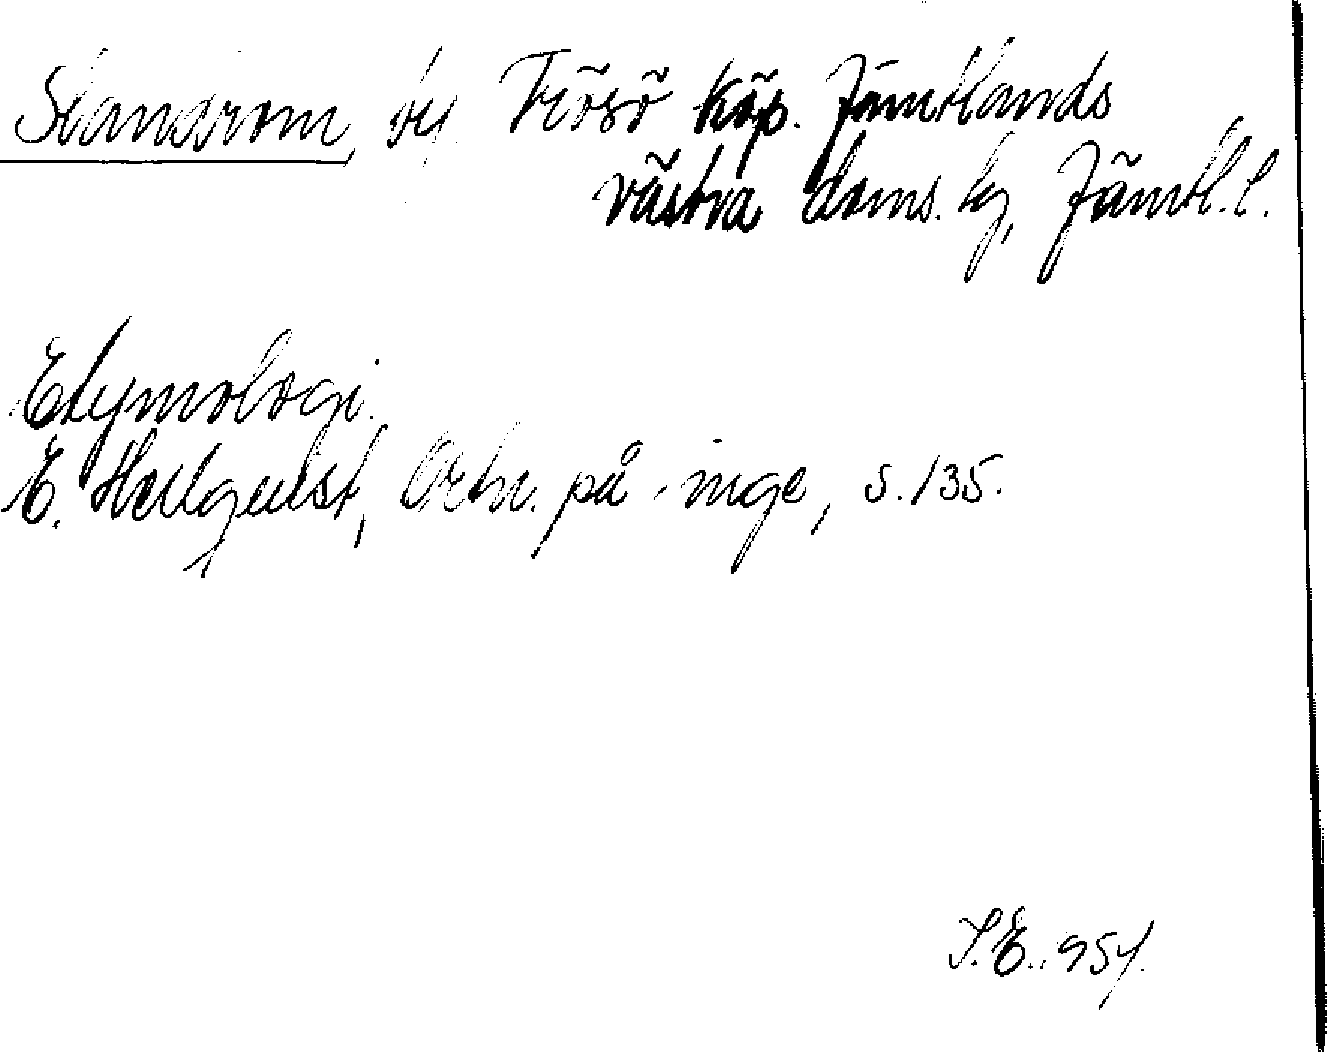 Slandrom, by. Frösö köp. Jämtlands
västra doms. tg, Jämtl. l.
Etymologi.
E. Hellquist, Ortn. på -inge, s. 135.
S. E. 954.